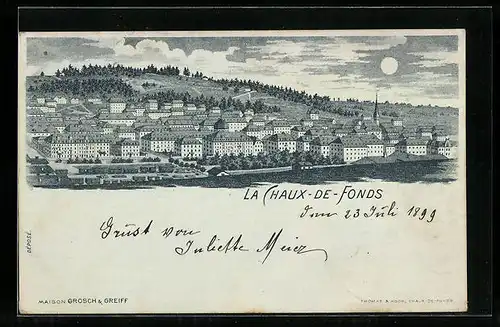 LA CHAUX-DE-FONDS
den 23 Juli 1899
Grüst von
Juliette Meier
DÉPOSÉ.
MAISON GROSCH & GREIFF